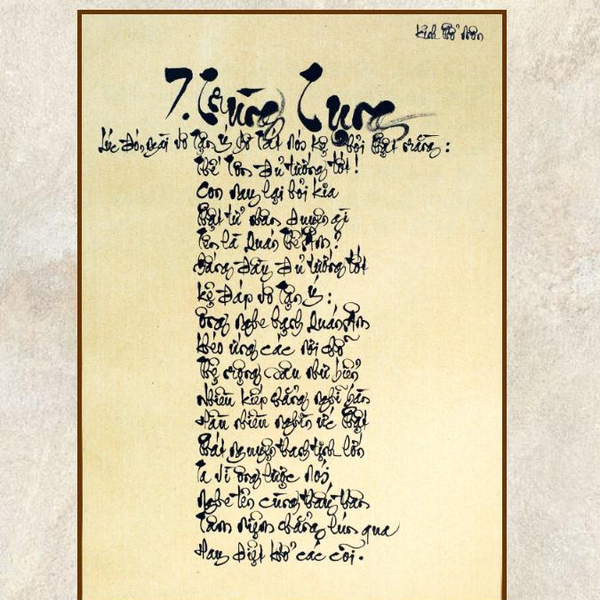 Kinh Phổ Môn
7. Trùng Tụng
Lúc đó, ngài Vô Tận Ý Bồ Tát nói kệ hỏi Phật rằng:
Thế Tôn đủ tướng tốt!
Con nay lại hỏi kia
Phật tử nhân duyên gì
Tên là Quán Thế Âm?
Đấng đầy đủ tướng tốt
Kệ đáp Vô Tận Ý:
Ông nghe hạnh Quán Âm
Khéo ứng các nơi chỗ
Thệ rộng sâu như biển
Nhiều kiếp chẳng nghĩ bàn
Hầu nhiều nghìn ức Phật
Phát nguyện thanh tịnh lớn
Ta vì ông lược nói,
Nghe tên cùng thấy thân
Tâm niệm chẳng luống qua
Hay diệt khổ các cõi.